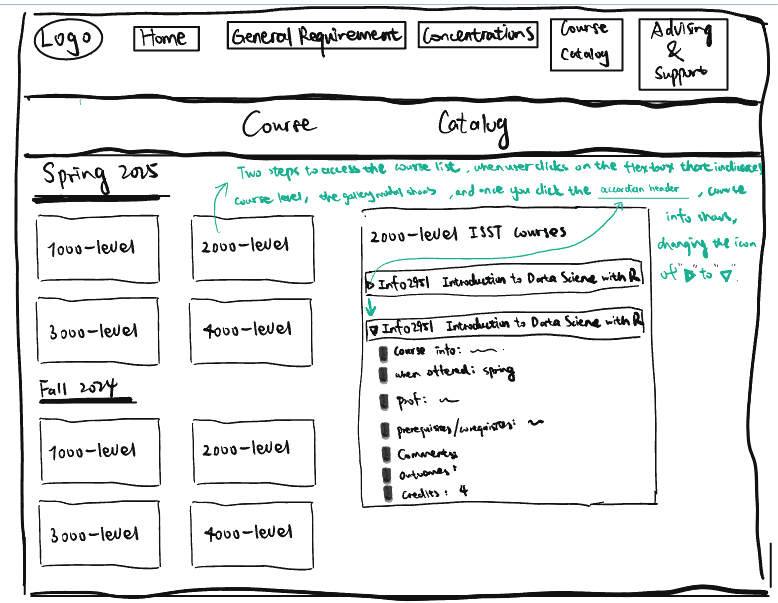 Logo
Home
General Requirement
Concentrations
Course
Catalog
Advising
&
Support
Course Catalog
Spring 2025
Two steps to access the course list, when user clicks on the flexbox that indicates
course level, the gallery modal shows, and once you click the accordian header, course
info shows,
changing the icon
of "▷" to "▽".
1000-level
2000-level
3000-level
4000-level
2000-level ISST courses
▷ Info2951 Introduction to Data Science with R
▽ Info2951 Introduction to Data Science with R
course info:
when offered: spring
prof:
prerequisites/corequisites:
Comments:
outcomes:
Credits: 4
Fall 2024
1000-level
2000-level
3000-level
4000-level